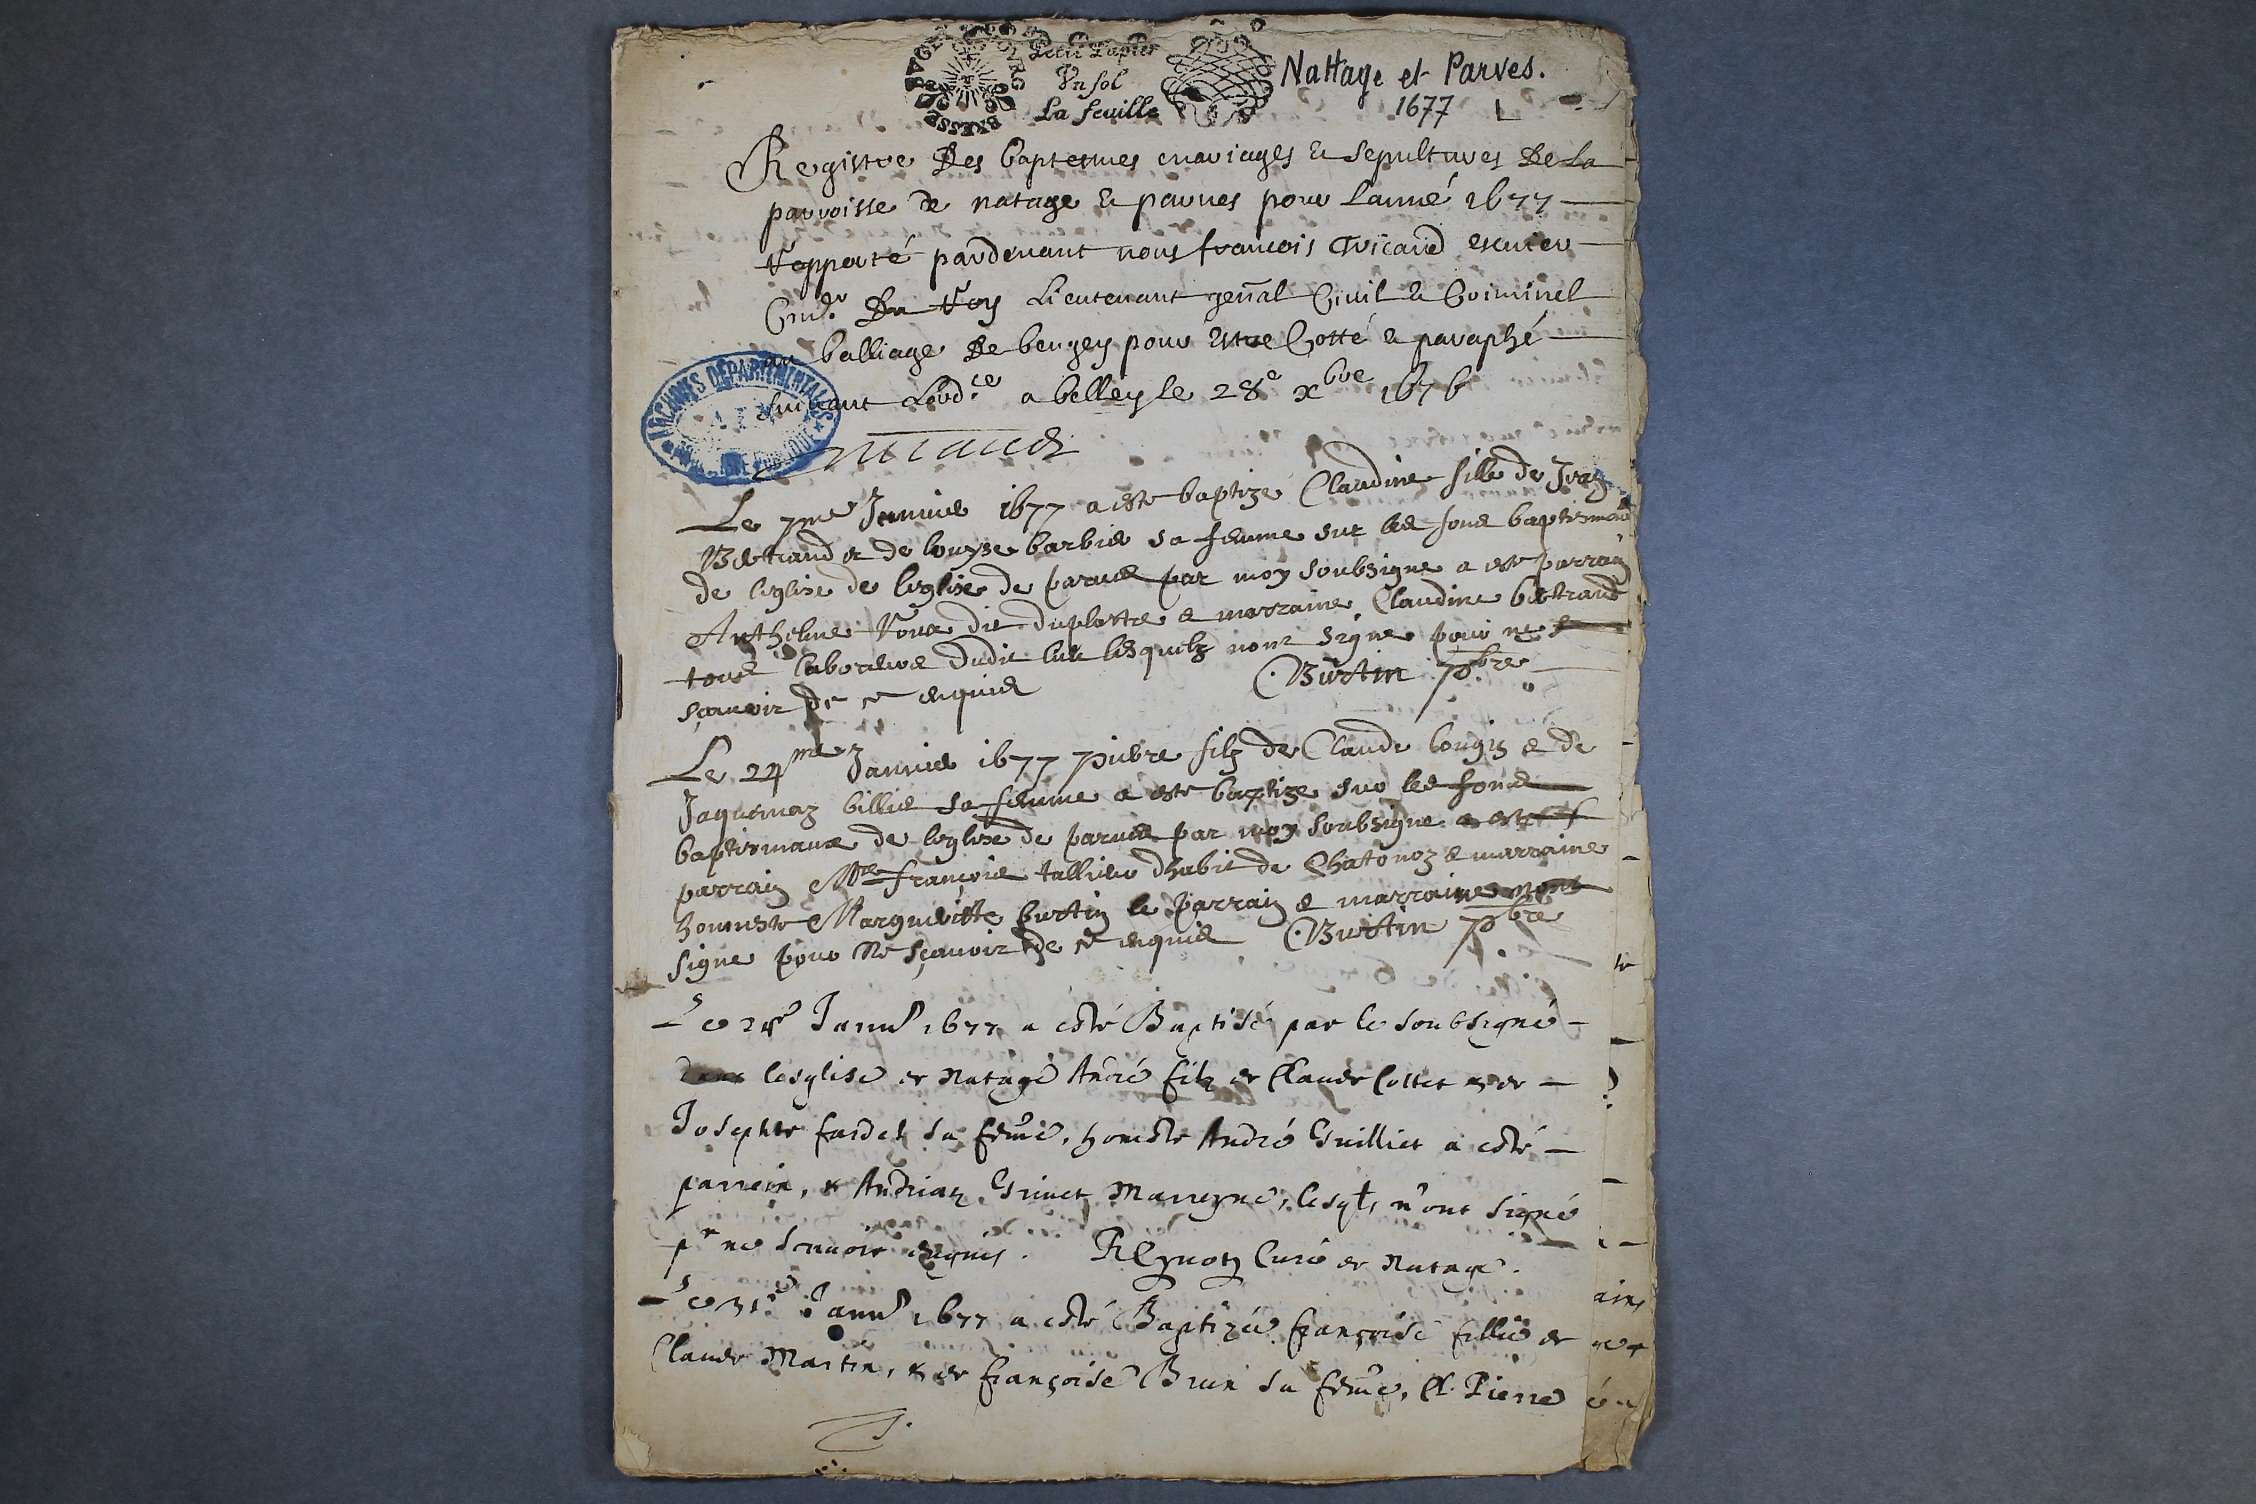 Petit Papier
Vn sol
La feuille
BOVRG
BRESSE
Nattage et Parves.
1677
Registre Des baptesmes mariages & sepultures De La
parroisse de natage & parues pour Lanné 1677
Repporté pardeuant nous francois escuier
Du Roy Lieutenant gen̄al Ciuil & Criminel
au balliage De beugey pour Estre Cotté & paraphé
suiuant Lord.ce a belley le 28e xbre 1676
ARCHIVES DEPARTEMENTALES
Le 7me Januier 1677 a este baptize Claudine fille de
Bertrand & de louyse barbier sa femme sur les fons baptismaux
de leglise de leglise de parues par moy soubsigne a este parrain
Anthelme Roux dit duplastre & marraine Claudine bertrand
tous laboureurs dudit lieu lesquelz nont signe pour ne
sçauoir de ce enquis C. Burtin pbre
Le 24me Januier 1677 pierre filz de Claude longin & de
Jaquemaz billiet sa femme a este baptize sur les fons
baptismaux de leglise de parues par moy soubsigne a este
parrain Mre françois tallieur dhabit de Chatonoz & marraine
honneste Margueritte burtin le parrain & marraine nont
signe pour Ne sçauoir de ce enquis C. Burtin pbre
Le Januier 1677 a esté Baptisé par le soubsigné
dans lesglise de Natage André filz de Claude Cottet & de
Josephte fardel sa feme, honeste André Guilliet a esté
parrein, & Andriaz Grinet Marreyne, lesqls n'ont signé
pr ne scauoir enquis. Reynotz Curé de Natage.
Le 31e Januier 1677 a esté Baptizée françoise fillie de
Claude Martin, & de françoise Brun sa feme, Cl. Pierre